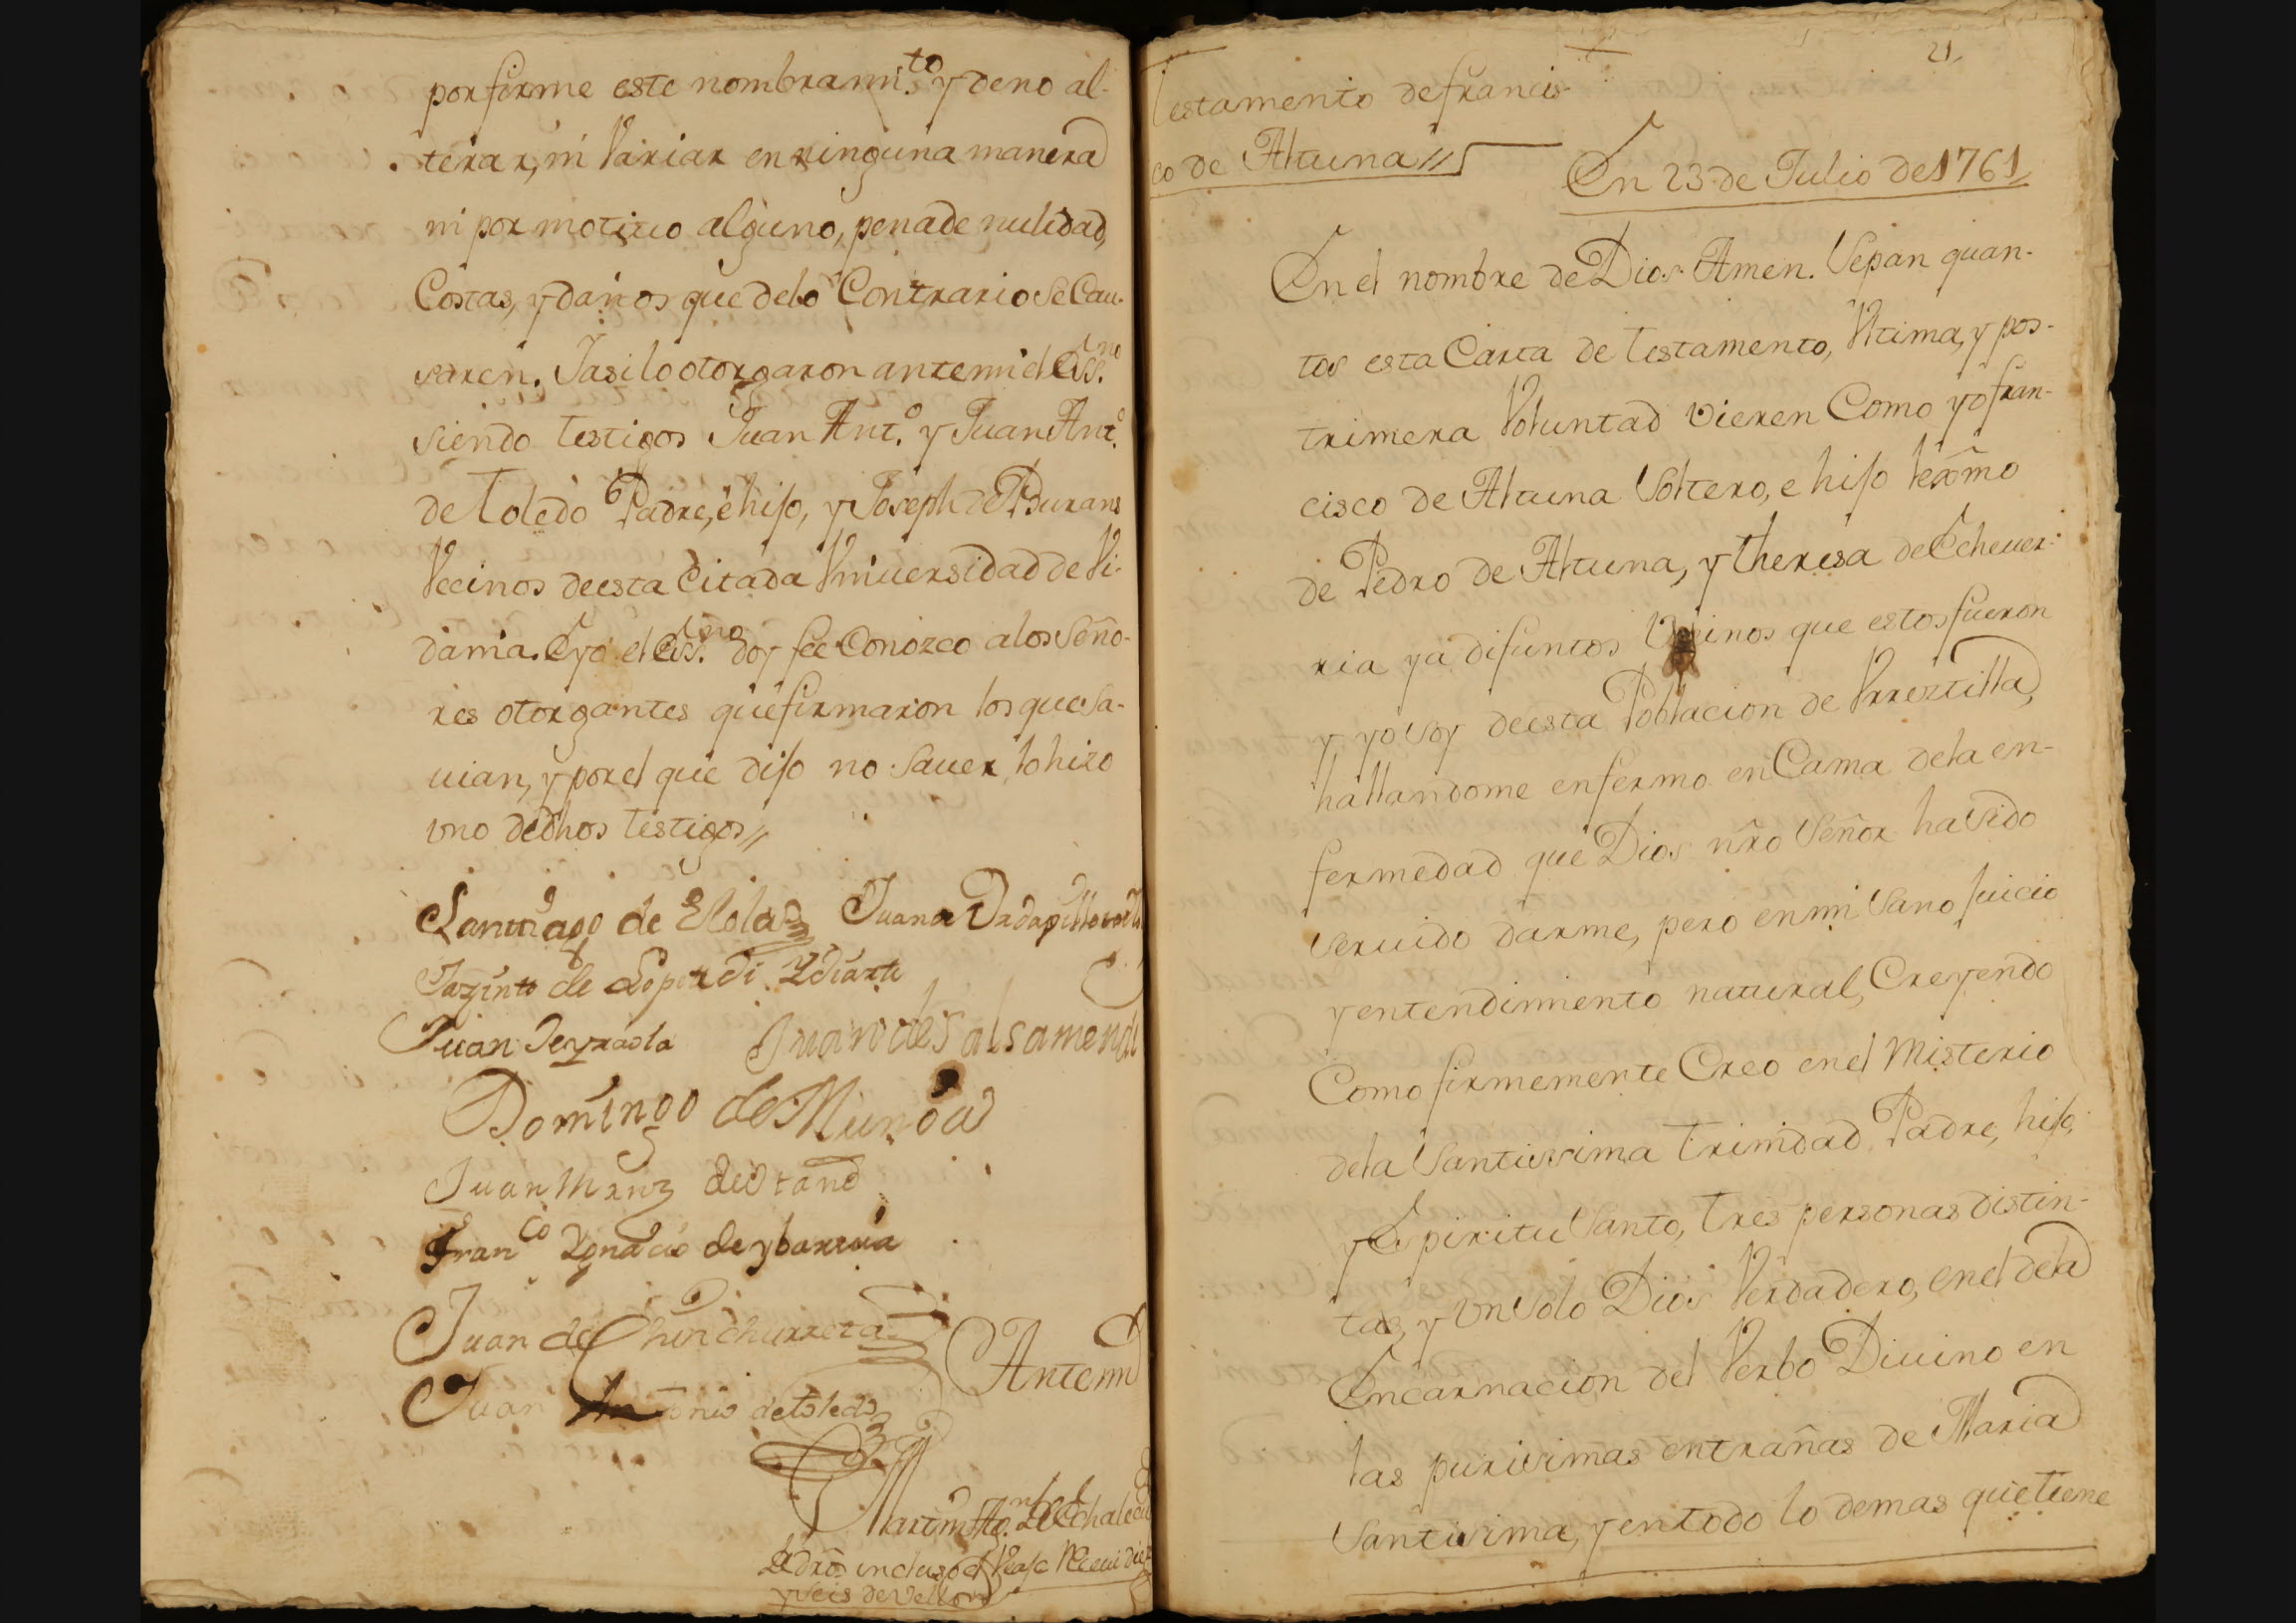 por firme este nombrami.to y de no al-
terar, ni Variar en ninguna manera
ni por motiuo alguno, pena de nulidad,
Costas, y daños que delo Contrario se Cau-
saren. Y asi lo otorgaron ante mi el Ess.no
siendo testigos Juan Ant.o y Juan Ant.o
de Toledo Padre, è hijo, y Joseph de
Vecinos de esta Citada Vniuersidad de Vi-
dania. E yo el Ess.no doy fee Conozco a los Seño-
res otorgantes que firmaron los que sa-
uian, y por el que dijo no sauer, lo hizo
vno de dhos testigos//
Santiago de Elola Juan
Jazinto de Ydiarte
Juan
Juan de
Domingo de Munoa
Juan
Fran.co Ygnacio de ybarruia
Juan de Chinchurreta
Ante mi
Juan Antonio de Toledo
Martin
incluso el
y seis de vellon
21,
Testamento de francis-
co de Altuna//
En 23 de Julio de 1761,,
En el nombre de Dios Amen. Sepan quan-
tos esta Carta de testamento, Vltima, y pos-
trimera Voluntad vieren Como yo fran-
cisco de Altuna Soltero, e hijo lexmo
de Pedro de Altuna, y theresa de Echeuer-
ria ya difuntos Vecinos que estos fueron
y yo soy de esta Poblacion de Vrreztilla,
hallandome enfermo en Cama dela en-
fermedad que Dios nro Señor ha sido
seruido darme, pero en mi sano Juicio
y entendimiento natural, Creyendo
Como firmemente Creo en el Misterio
dela Santissima trinidad Padre, hijo,
y Espiritu Santo, tres personas distin-
tas, y vn solo Dios Verdadero, en el dela
Encarnacion del Verbo Diuino en
las purissimas entrañas de Maria
Santissima, y en todo lo demas que tiene